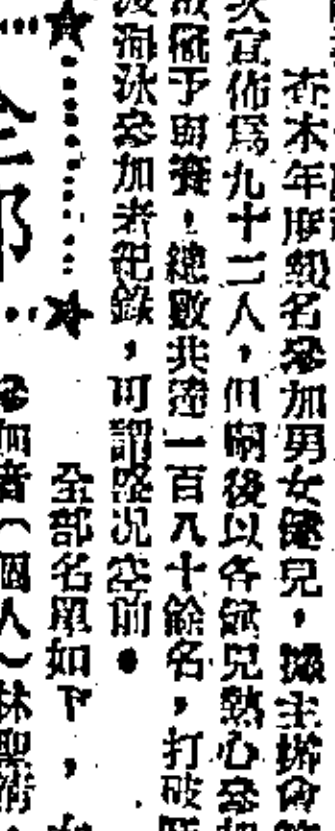 查本年度報名參加男女健兒，據主辦會
宣佈爲九十二人，但嗣後以各健兒熱心參加
予與賽，總數共達一百八十餘名，打破
渡海泳參加者紀錄，可謂盛况空前。
全部名單如下，
參加者（個人）林